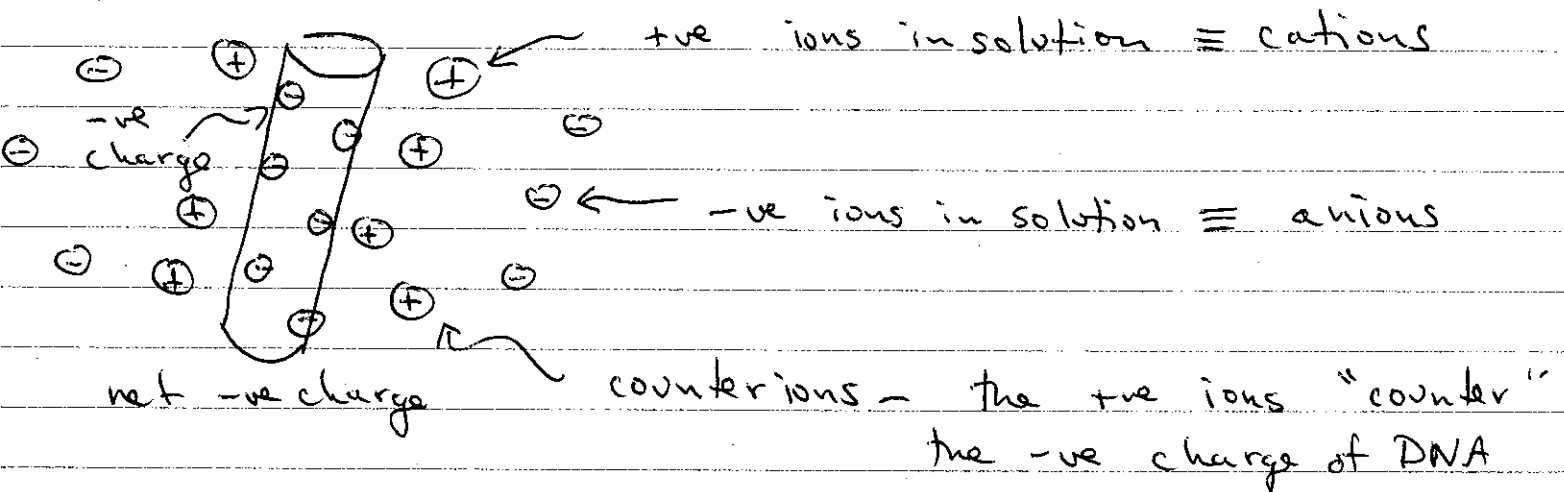 +ve ions in solution ≡ cations
-ve
charge
-ve ions in solution ≡ anions
net -ve charge
counterions - the +ve ions "counter"
the -ve charge of DNA